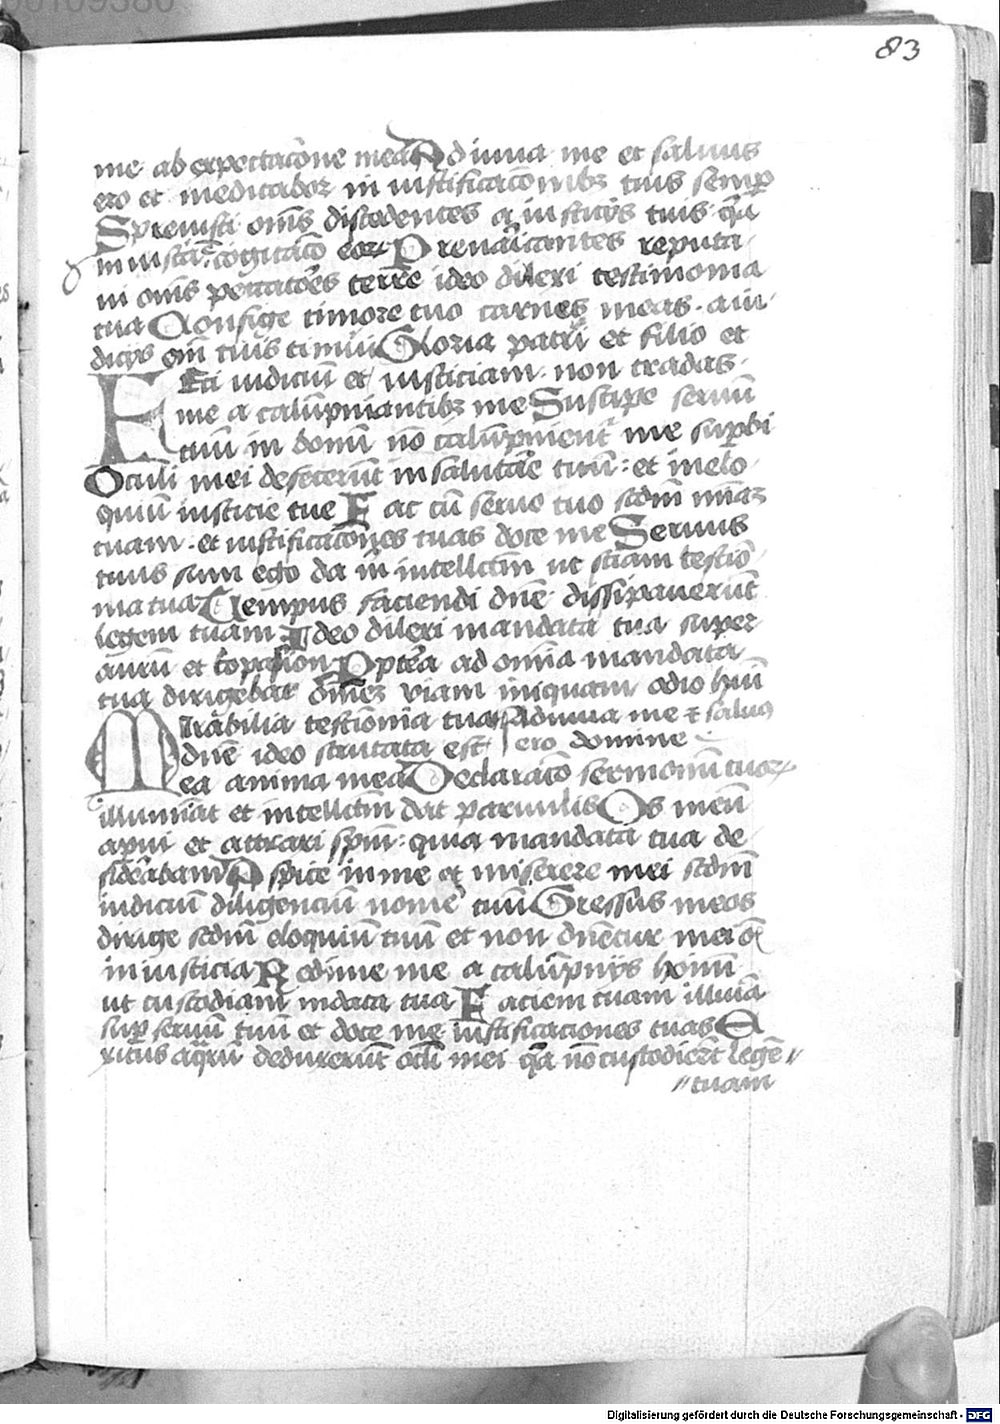 83
me ab expectacōne mea Adiuua me et saluus
ero et meditabor in iustificacōnibꝫ tuis semꝑ
Spreuisti om̄s discedentes a iusticijs tuis qꝛ̄
iniusta cogitacō eoꝝ Preuaricantes reputa
ui om̄s peccatōes terre ideo dilexi testimonia
tua Confige timore tuo carnes meas a iu
dicijs em̄ tuis timui Gloria patri et filio et
Feci iudiciū et iusticiam non tradas
me a calūpniantibꝫ me Suscipe seruū
tuū in bonū nō calūpnient᷑ me suꝑbi
Oculi mei defecerūt in salutaꝛ̄e tuū et in elo
quiū iusticie tue Fac cū seruo tuo scdm̄ miāꝫ
tuam et iustificacōnes tuas doce me Seruus
tuus sum ego da m̄ intellcm̄ ut sciam testiō
nia tua Tempus faciendi dn̄e dissipauerūt
legem tuam Ideo dilexi mandata tua super
aurū et topasion Ꝓpt̄ea ad omīa mandata
tua dirigebar om̄eꝫ viam iniquam odio hūi
Mirabilia testiōnia tua Adiuua me ⁊ saluꝯ
dn̄e ideo scrutata est ero domine
ea anima mea Declaracō sermonū tuoꝝ
illumīat et intellcm̄ dat paruulis Os meū
aꝑui et attraxi spm̄ quia mandata tua de
sideābam Aspice in me et miserere mei scdm̄
iudiciū diligenciū nomē tuū Gressus meos
dirige scdm̄ eloquiū tuū et non dn̄etur mei ōı̄
iniusticia Redime me a calūpnijs hoīm
ut custodiam mdata tua Faciem tuam illuiā
suꝑ seruū tuū et doce me iustificaciones tuas E
xitus aqͣrū deduxerūt ocli mei qꝛ̄ nō custodieꝛ̄t legē
tuam
Digitalisierung gefördert durch die Deutsche Forschungsgemeinschaft - DFG